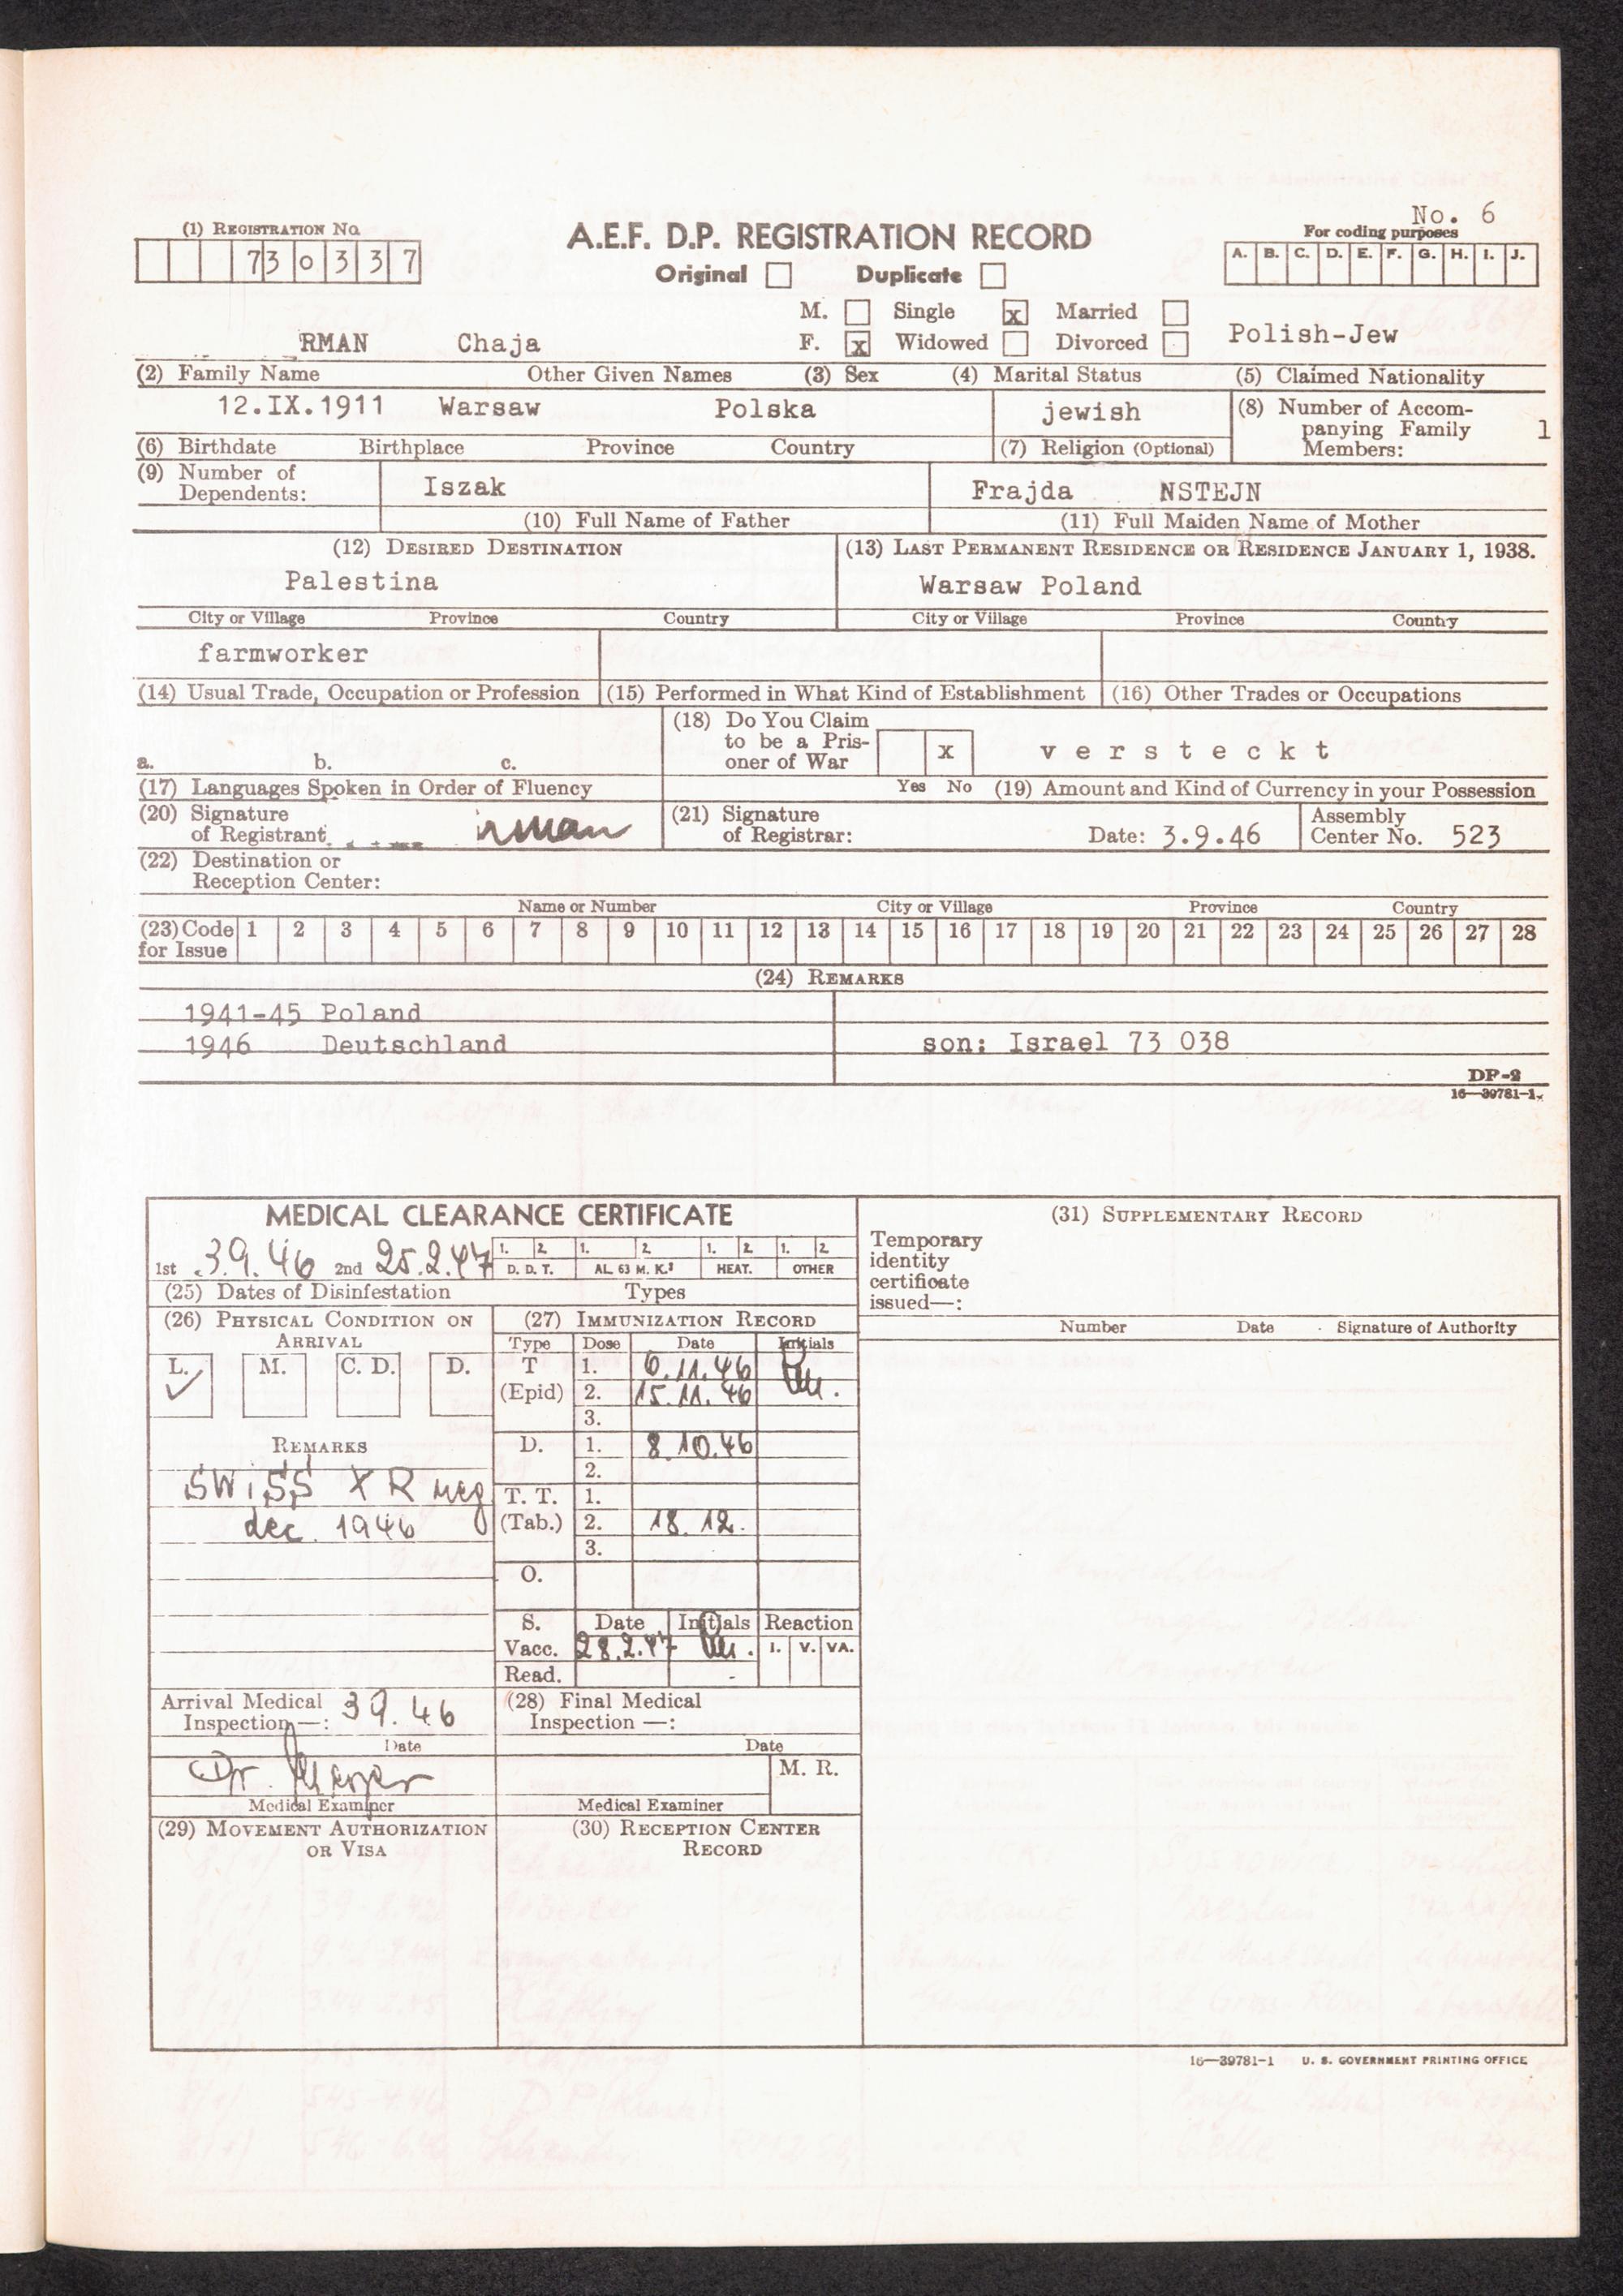 No. 6
(1) Registration No.
73 0 3 3 7
A.E.F. D.P. REGISTRATION RECORD
For coding purposes
A. B. C. D. E. F. G. H. I. J.
Original Duplicate
M. Single x Married
RMAN Chaja F. x Widowed Divorced Polish-Jew
(2) Family Name Other Given Names (3) Sex (4) Marital Status (5) Claimed Nationality
12.IX.1911 Warsaw Polska jewish (8) Number of Accom-
panying Family 1
Members:
(6) Birthdate Birthplace Province Country (7) Religion (Optional)
(9) Number of
Dependents: Iszak Frajda NSTEJN
(10) Full Name of Father (11) Full Maiden Name of Mother
(12) Desired Destination (13) Last Permanent Residence or Residence January 1, 1938.
Palestina Warsaw Poland
City or Village Province Country City or Village Province Country
farmworker
(14) Usual Trade, Occupation or Profession (15) Performed in What Kind of Establishment (16) Other Trades or Occupations
(18) Do You Claim
to be a Pris-
oner of War x v e r s t e c k t
a. b. c.
(17) Languages Spoken in Order of Fluency Yes No (19) Amount and Kind of Currency in your Possession
(20) Signature
of Registrant: rman (21) Signature
of Registrar: Date: 3.9.46 Assembly
Center No. 523
(22) Destination or
Reception Center:
Name or Number City or Village Province Country
(23) Code
for Issue 1 2 3 4 5 6 7 8 9 10 11 12 13 14 15 16 17 18 19 20 21 22 23 24 25 26 27 28
(24) Remarks
1941-45 Poland
1946 Deutschland son: Israel 73 038
DP-2
16—39781-1
MEDICAL CLEARANCE CERTIFICATE
1st 3.9.46 2nd 25.2.47
1. 2. 1. 2. 1. 2. 1. 2.
D. D. T. AL. 63 M. K.³ HEAT. OTHER
(25) Dates of Disinfestation Types
(26) Physical Condition on
Arrival
L. M. C. D. D.
Remarks
SWiSS X R neg
dec. 1946
(27) Immunization Record
Type Dose Date Initials
T 1. 6.11.46
(Epid) 2. 15.11.46
3.
D. 1. 8.10.46
2.
T. T. 1.
(Tab.) 2. 18.12.
3.
O.
S. Date Initials Reaction
Vacc. 28.2.47 I. V. VA.
Read.
Arrival Medical
Inspection—: 3 9. 46
Date
Dr.
Medical Examiner
(28) Final Medical
Inspection —:
Date
M. R.
Medical Examiner
(29) Movement Authorization
or Visa
(30) Reception Center
Record
(31) Supplementary Record
Temporary
identity
certificate
issued—:
Number Date Signature of Authority
16—39781-1 U. S. GOVERNMENT PRINTING OFFICE